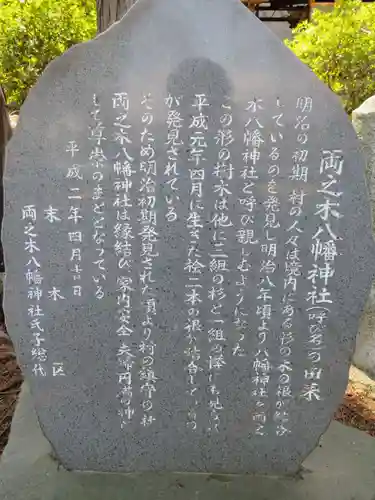 両之木八幡神社(呼び名)の由来
明治の初期、村の人々は境内にある杉の木の根が結合
しているのを発見し明治八年頃より八幡神社を両之
木八幡神社と呼び親しむようになった
この形の樹木は他に三組の杉と一組の
平成元年四月に生きた松二本の根が結合しているの
が発見されている
そのため明治初期発見された頃より村の鎮守の社
両之木八幡神社は縁結び、室内安全、夫婦円満の神と
して草忠のまととなっている
平成二年四月吉日
末木区
両之木八幡神社氏子総代